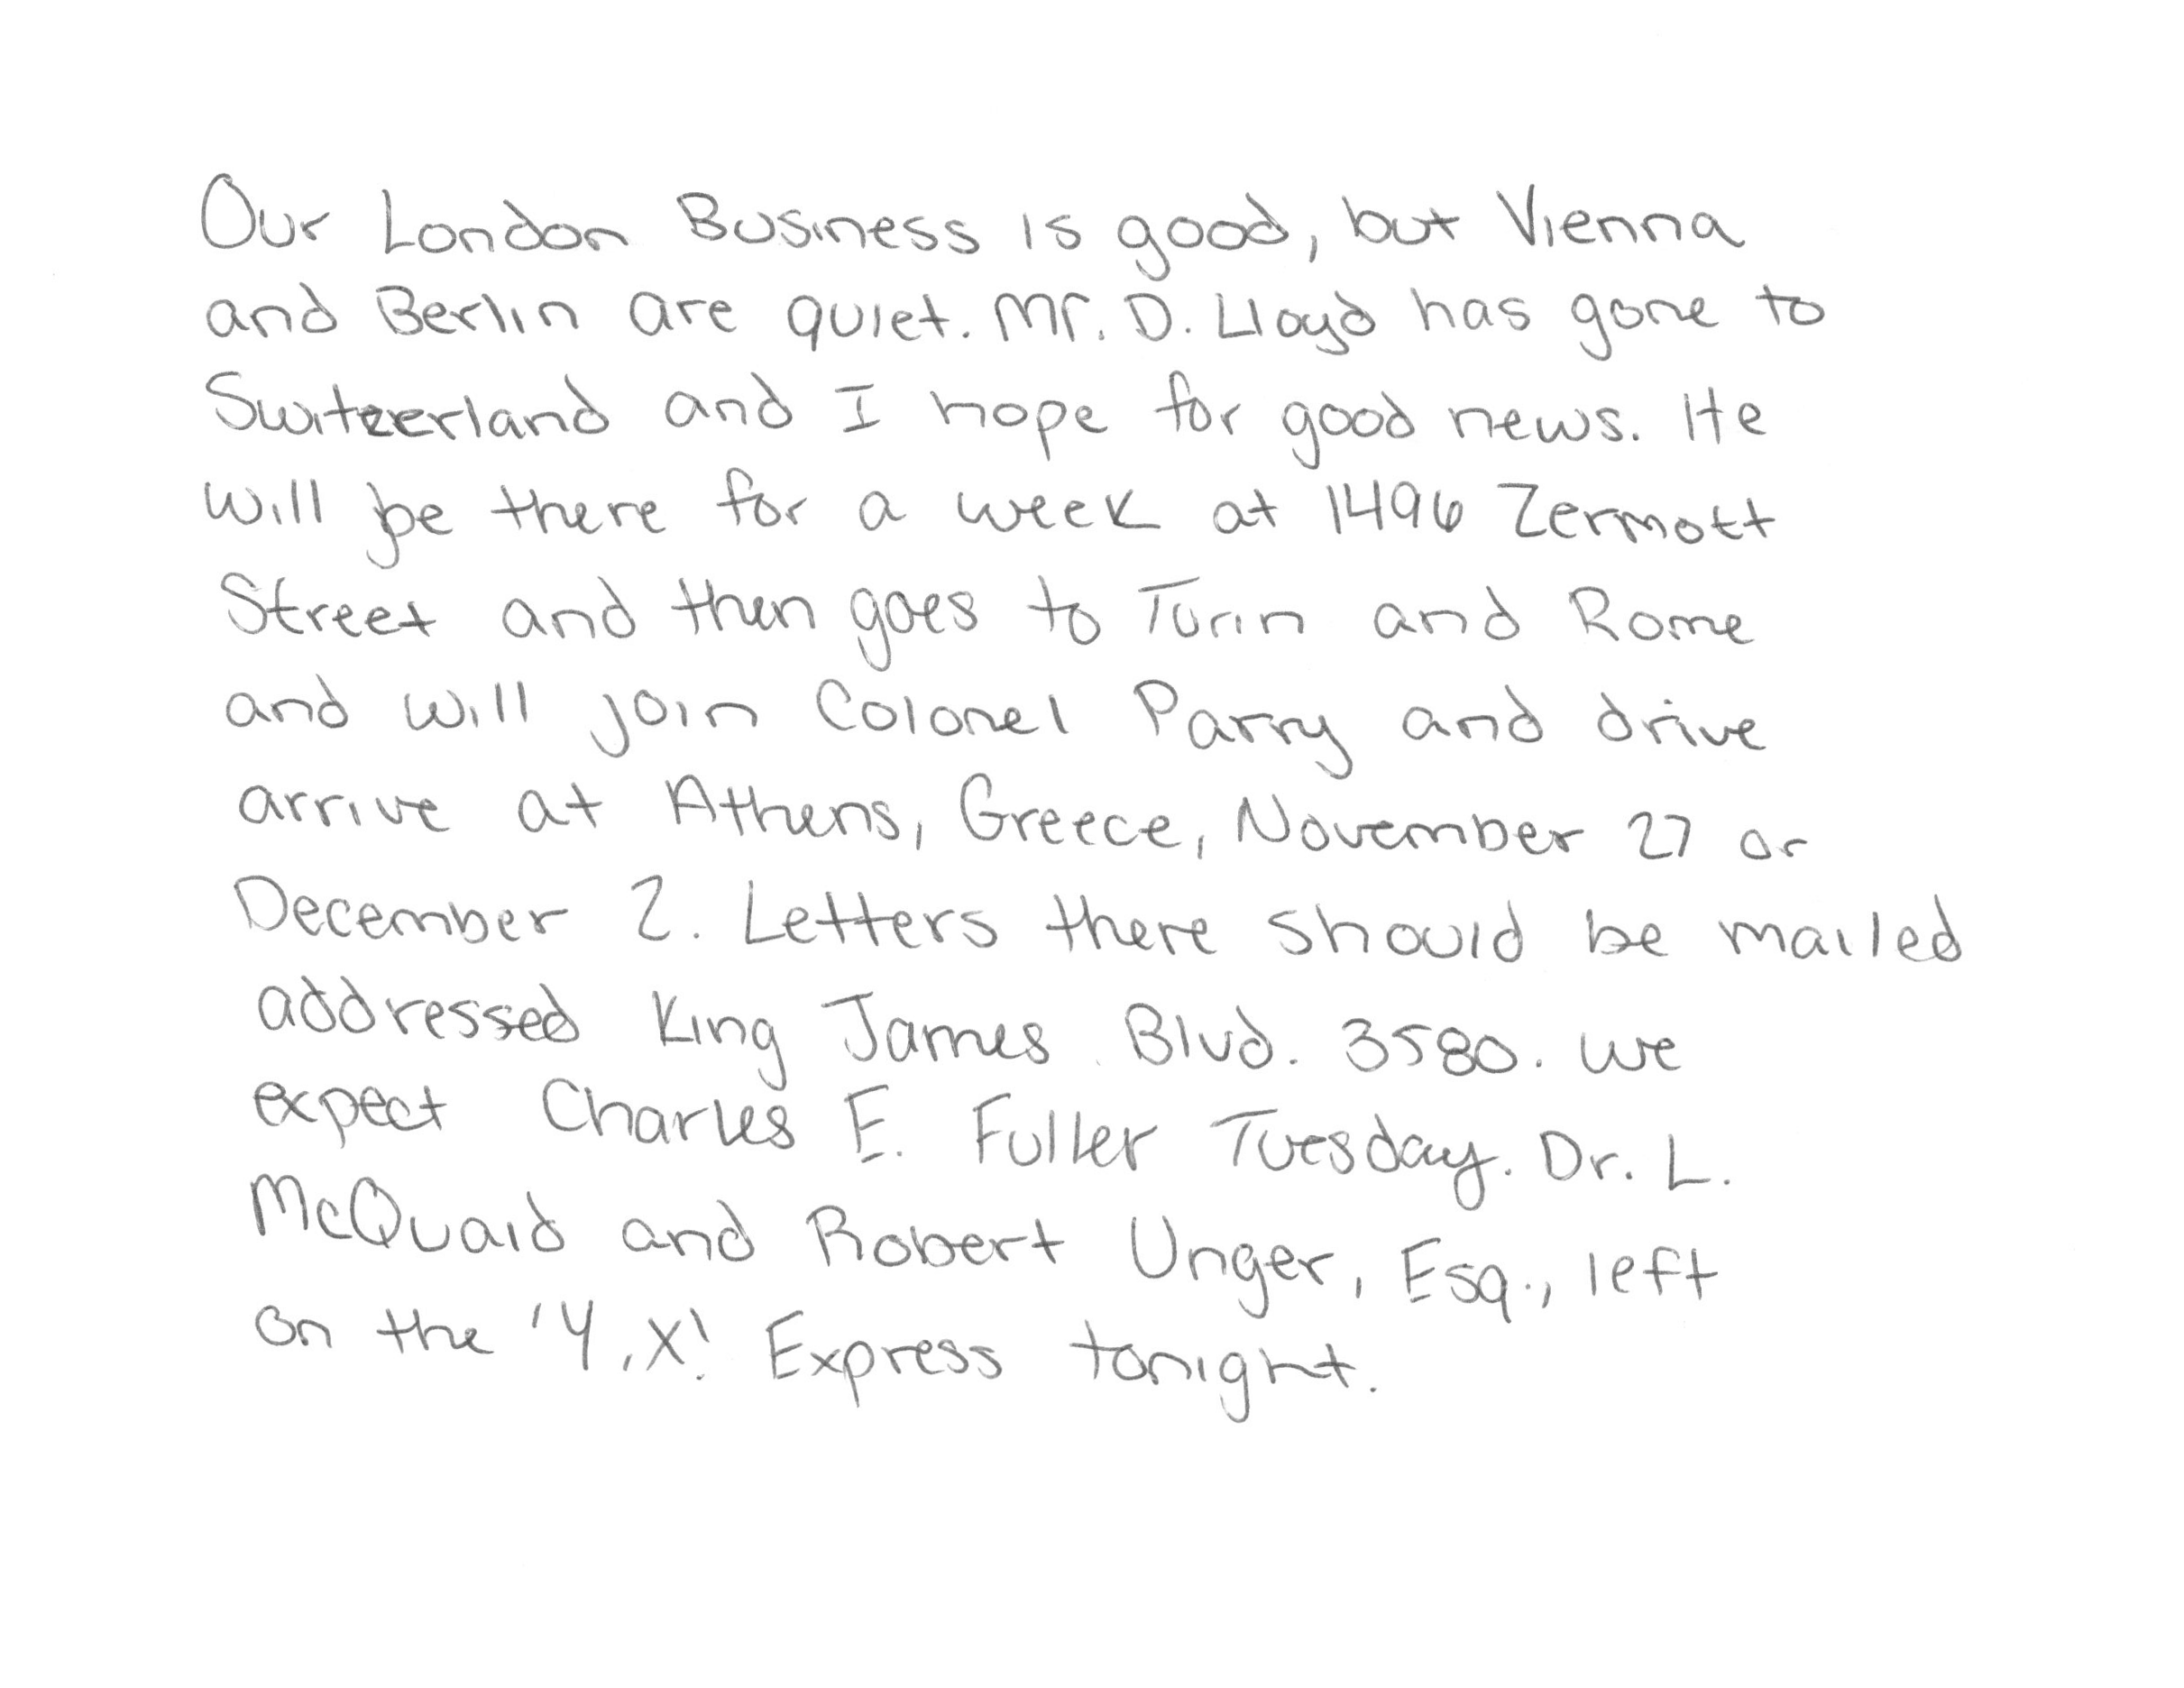 Our London Business is good, but Vienna
and Berlin are quiet. Mr. D. Lloyd has gone to
Switzerland and I hope for good news. He
will be there for a week at 1496 Zermott
Street and then goes to Turin and Rome
and will join Colonel Parry and drive
arrive at Athens, Greece, November 27 or
December 2. Letters there should be mailed
addressed King James Blvd. 3580. We
expect Charles E. Fuller Tuesday. Dr. L.
McQuaid and Robert Unger, Esq., left
on the 'Y.X.' Express tonight.